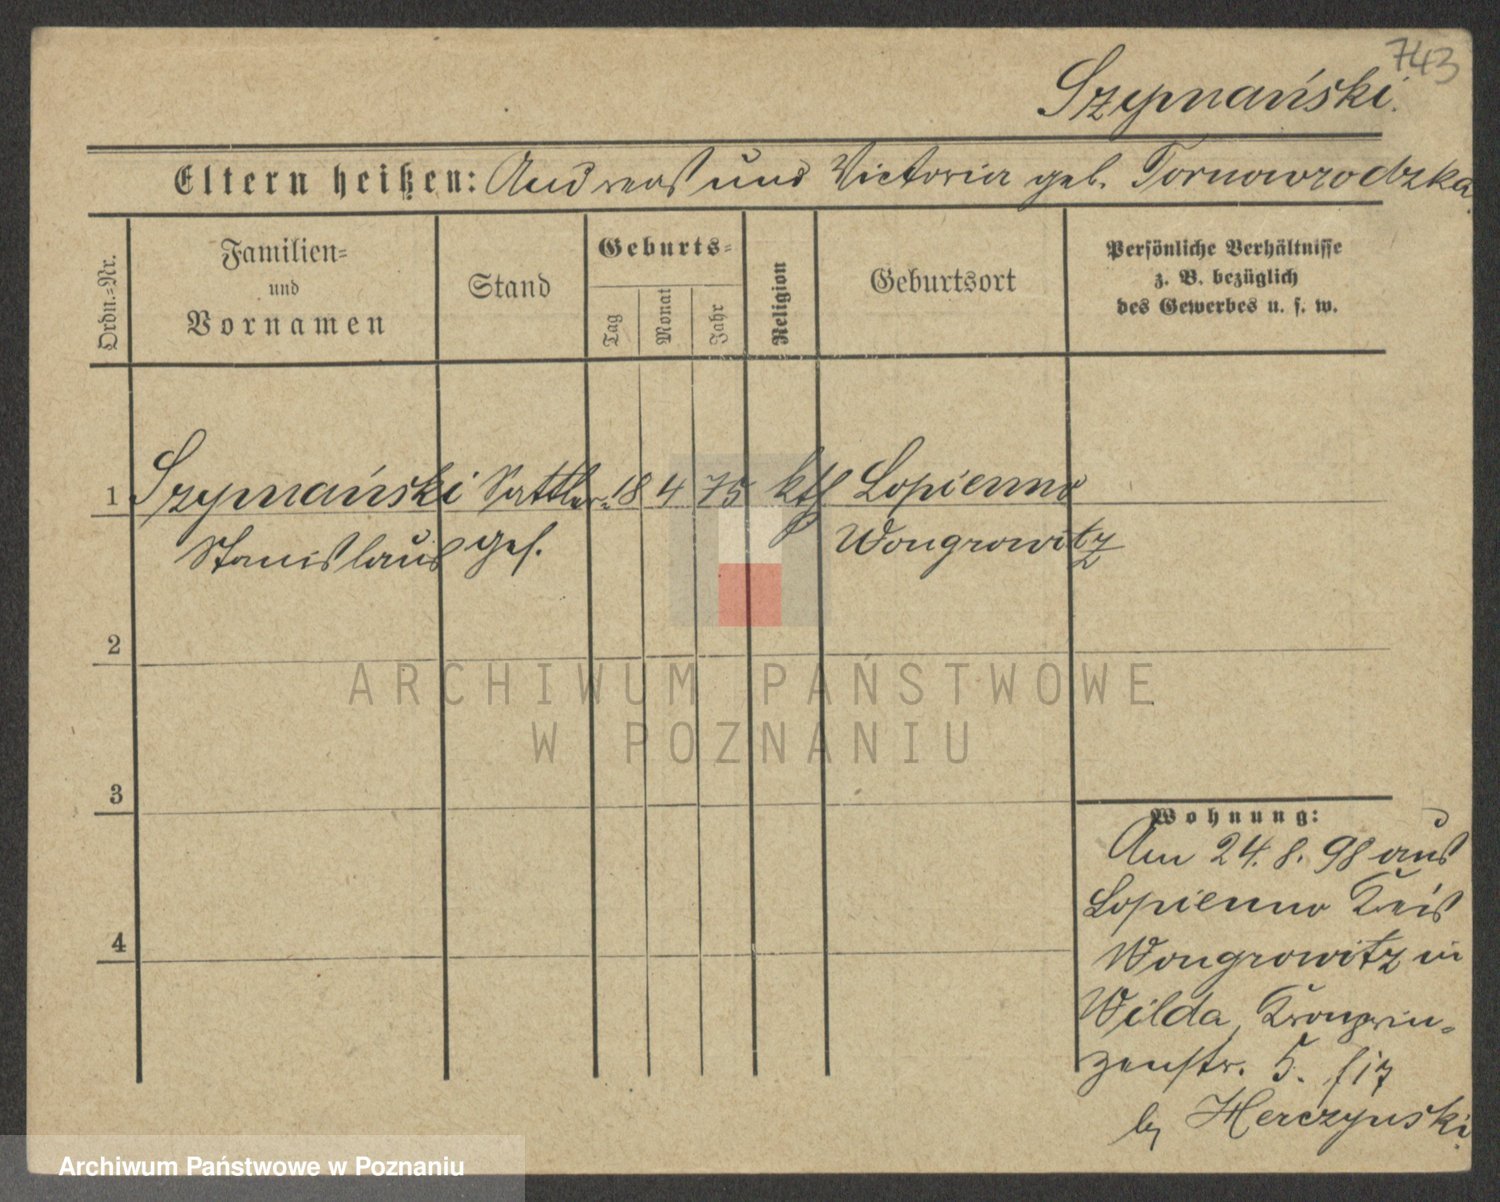 743
Szymański.
Eltern heißen: Andreas und Victoria geb. Tornowrodzka.
Ordn.-Nr.
Familien- und Vornamen
Stand
Geburts-
Tag
Monat
Jahr
Religion
Geburtsort
Persönliche Verhältnisse
z. B. bezüglich
des Gewerbes u. s. w.
1 Szymański Sattler- 18 4 75 kth Lopienno
Stanislaus ges. Wongrowitz
2
3
4
Wohnung:
Am 24. 8. 98 aus
Lopienno Kreis
Wongrowitz in
Wilda, Kronprin-
zenstr. 5.
by Herczynski.
ARCHIWUM PAŃSTWOWE
W POZNANIU
Archiwum Państwowe w Poznaniu